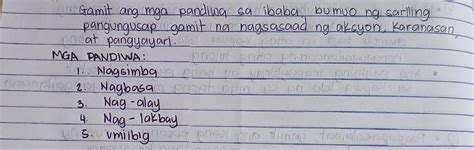 Gamit ang mga pandiwa sa ibaba, bumuo ng sariling
pangungusap gamit na nagsasaad ng aksyon, karanasan,
at pangyayari.
MGA PANDIWA:
1. Nagsimba
2. Nagbasa
3. Nag-alay
4. Nag-lakbay
5. umiibig